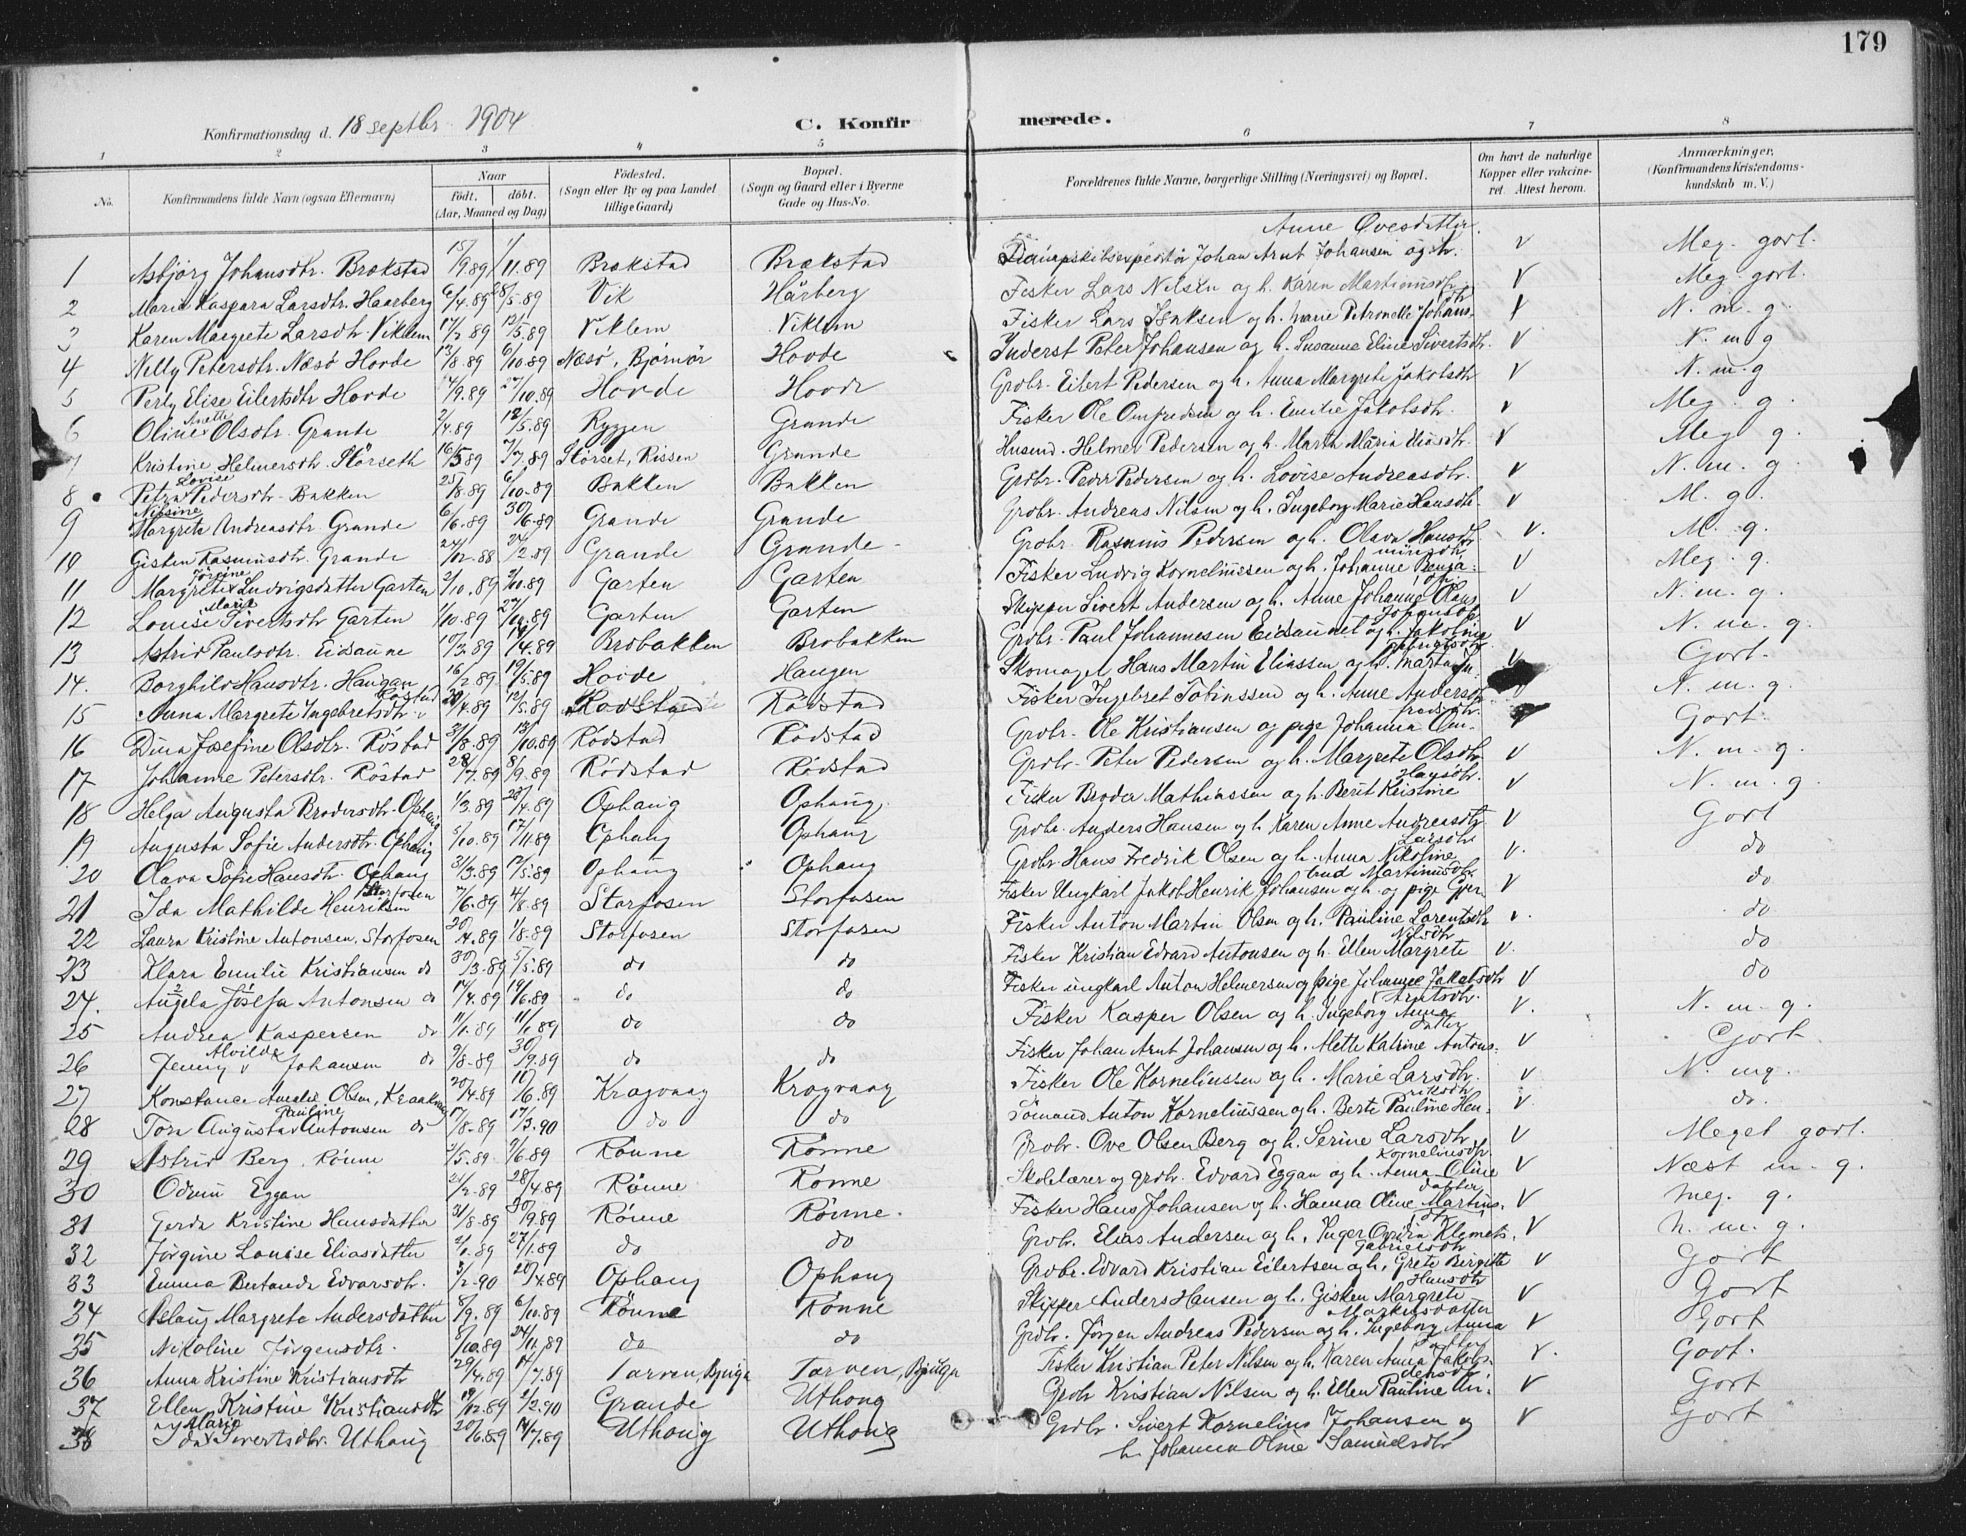 179
Konfirmationsdag d. 18 septbr 1904 C. Konfirmerede.
1 2 3 4 5 6 7 8
No. Konfirmandens fulde Navn (ogsaa Efternavn) Naar födt. döbt. (Aar, Maaned og Dag) Födested. (Sogn eller By og paa Landet tillige Gaard) Bopæl. (Sogn og Gaard eller i Byerne Gade og Hus-No. Forældrenes fulde Navne, borgerlige Stilling (Næringsvei) og Bopæl. Om havt de naturlige Kopper eller vaccineret. Attest herom. Anmærkninger, (Konfirmandens Kristendomskundskab m. V.)
1 Asbjørg Johansdtr. Brekstad 15/9.89 1/11.89 Brekstad Brekstad Johan Arnt Johansen og h. Anne Ovesdatter v Meg. godt.
2 Marie Kaspara Larsdtr. Haarberg 6/4.89 28/5.89 Vik Hårberg Fisker Lars Nilsen og h. Karen Martinusdtr v Meg godt.
3 Karen Margrete Larsdtr Viklem 17/2.89 12/5.89 Viklem Viklem Fisker Lars Isaksen og h. Marie Petronelle Johansdtr v N. m. g.
4 Nelly Petersdtr. Næsö Hovde 13/8.89 6/10.89 Næsö, Bjørnör Hovde Inderst Peter Johansen og h. Susanna Eline Sivertsdtr. v N. m g
5 Perly Elise Eilertsdtr Hovde 14/9.89 27/10.89 Hovde Hovde Grdbr. Eilert Pedersen og h. Anna Margrete Jakobsdtr v N. m. g
6 Oline Anette Olsdtr. Grande 2/4.89 12/5.89 Ryggen Grande Fisker Ole Omfredsen og h. Emilie Jakobsdtr. v Meg. g.
7 Kristine Helmersdtr. Störseth 16/5 89 7/7.89 Störset, Rissen Grande Husmd. Helmer Pedersen og h. Marta Maria Eliasdtr. v Meg g.
8 Petra Lovise Pedersdtr. Bakken 25/8.89 6/10.89 Bakken Bakken Grdbr. Peder Pedersen og h. Lovise Andreasdtr. v N. m. g.
9 Nilsine Margreta Andreasdtr Grande 6/6.89 30/6.89 Grande Grande Grdbr. Andreas Nilsen og h. Ingeborg Marie Hansdtr. v M. g.
10 Gisken Rasmusdtr. Grande 24/12.88 24/2.89 Grande Grande Grdbr. Rasmus Pedersen og h. Olava Hansdtr v. M. g.
11 Margrete Jörgine Ludvigsdatter Garten 2/10.89 /10.89 Garten Garten Fisker Ludvig Kornelinssen og h. Johanne Benjaminsdtr v Meg. g.
12 Louise Marie Sivertsdtr Garten 1/10.89 27/10.89 Garten Garten Skipper Sivert Andersen og h. Anne Johanne Olausdtr v N. m. g.
13 Astrid Paulsdtr. Eidsaune 10/2.89 14/4.89 Brobakken Brobakken Grdbr. Paul Johannesen Eidsaunet og h. Jakobina Johansdtr. v N. m. g.
14. Borghild Hansdtr. Haugan 16/2.89 19/5.89 Hovde Haugen Skomager Hans Martin Eliassen og h. Marta v Godt.
15 Anna Margrete Ingebretsdtr. Röstad 20/4.89 12/5.89 Rodstad Rödstad Fisker Ingebret Tobiassen og h. Anne Andersdtr v N. m. g.
16 Dina Josefine Olsdtr. Röstad 21/8.89 13/10.89 Rödstad Rödstad Grdbr. Ole Kristiansen og pige Johanna Omfredsdtr. v Godt.
17 Johanne Petersdtr. Röstad 28/7.89 8/9.89 Rödstad Rödstad Grdbr. Peter Pedersen og h. Margrete Olsdtr v N. m. g.
18 Helga Augusta Brodersdtr. Ophaug 1/3.89 28/4.89 Ophaug Ophaug Fisker Broder Mathiassen og h. Berit Kristine Hansdtr. v N. m. g.
19 Augusta Sofie Andersdtr. Ophaug 5/10.89 17/11.89 Ophaug Ophaug Grdbr. Anders Hansen og h. Karen Anne Andreasdtr v Godt
20 Olava Sofie Hansdtr. Ophaug 31/3.89 12/5.89 Ophaug Ophaug Grdbr Hans Fredrik Olsen og h. Anna Nikoline Larsdtr. v. do
21 Ida Mathilde Henriksen Storfosen 7/6.89 4/8.89 Storfosen Storfosen Fisker Ungkarl Jakob Henrik Johansen og h. og pige Gjertrud Martinusdtr. v do
22 Laura Kristine Antonsen, Storfosen 20/4.89 1/8.89 Storfosen Storfosen Fisker Anton Martin Olsen og h. Pauline Larentsdtr v. do
23 Klara Emilie Kristiansen do 30/3.89 5/5.89 do do Fisker Kristian Edvard Antonsen og h. Ellen Margrete Nilsdtr v. do
24. Angela Josefa Antonsen do 14/4.89 19/6.89 do do Fisker ungkarl Anton Helmersen og pige Johanna Jakobsdtr v do
25 Andrea Kaspersen do 11/1.89 11/ .89 do do Fisker Kasper Olsen og h. Ingeborg Anna Arntsdtr. v. N. m. g.
26 Jenny Alvilde Johansen do 9/8.89 30/9.89 do do Fisker Johan Arnt Johansen og h. Mette Katrine Antonsdatter v Godt
27 Konstance Amalie Olsen, Kraakvaag 20/4.89 16/6.89 Kragvaag Krogvaag Fisker Ole Korneliussen og h. Marie Larsdtr. v N. mg.
28 Tora Augusta Pauline Antonsen do 17/8.89 17/3.90 do do Sömand Anton Korneliussen og h. Berte Pauline Henriksdtr v do.
29 Astrid Berg. Rönne 2/5.89 9/6.89 Rönne Rönne Grdbr. Ove Olsen Berg og h. Serine Larsdtr. v Meget godt.
30 Odrun Eggan 21/2.89 28/4.89 Rönne Rönne Skolelærer og grdbr. Edvard Eggan og h. Anna Oline Korneliusdtr. v Næst m. g.
31 Gerda Kristine Hansdatter 31/8.89 30/9.89 Rönne Rönne. Fisker Hans Johansen og h. Hanna Oline Martinsdatter v Meg. g.
32 Jørgine Louise Eliasdatter 2/1.89 27/1.89 do do Grdbr. Elias Andersen og h. Inger Klemetsdtr. v N. m. g.
33 Emma Edvarsdtr. 3/2.90 20/4.89 Ophaug Ophaug Grdbr. Edvard Kristian Eilertsen og h. Grete Birgitta Gabrielsdtr v Godt
34 Aslaug Margrete Andersdatter 8/9.89 6/10.89 Rönne Rönne Skipper Anders Hansen og h. Gisken Margrete Hansdtr v Godt
35 Nikoline Jörgensdtr. 8/10.89 24/11.89 do do Grdbr. Jörgen Andreas Pedersen og h. Ingeborg Anna Markusdatter v Godt
36 Anna Kristine Kristiansdtr 29/4.89 14/7.89 Tarven, Bjugn Tarven, Bjugn Fisker Kristian Peter Nilsen og h. Karen Anna Jakobsdatter v. Godt.
37 Ellen Kristine Kristiansdtr 19/12.89 2/2.90 Grande Uthaug Grdbr Kristian Nilsen og h. Ellen Pauline v Godt
38 Ida Marie Sivertsdtr. Uthaug 20/6.89 14/7.89 Uthaug Uthaug Grdbr. Sivert Kornelius Johansen og v Godt
h. Johanna Oline Samuelsdtr